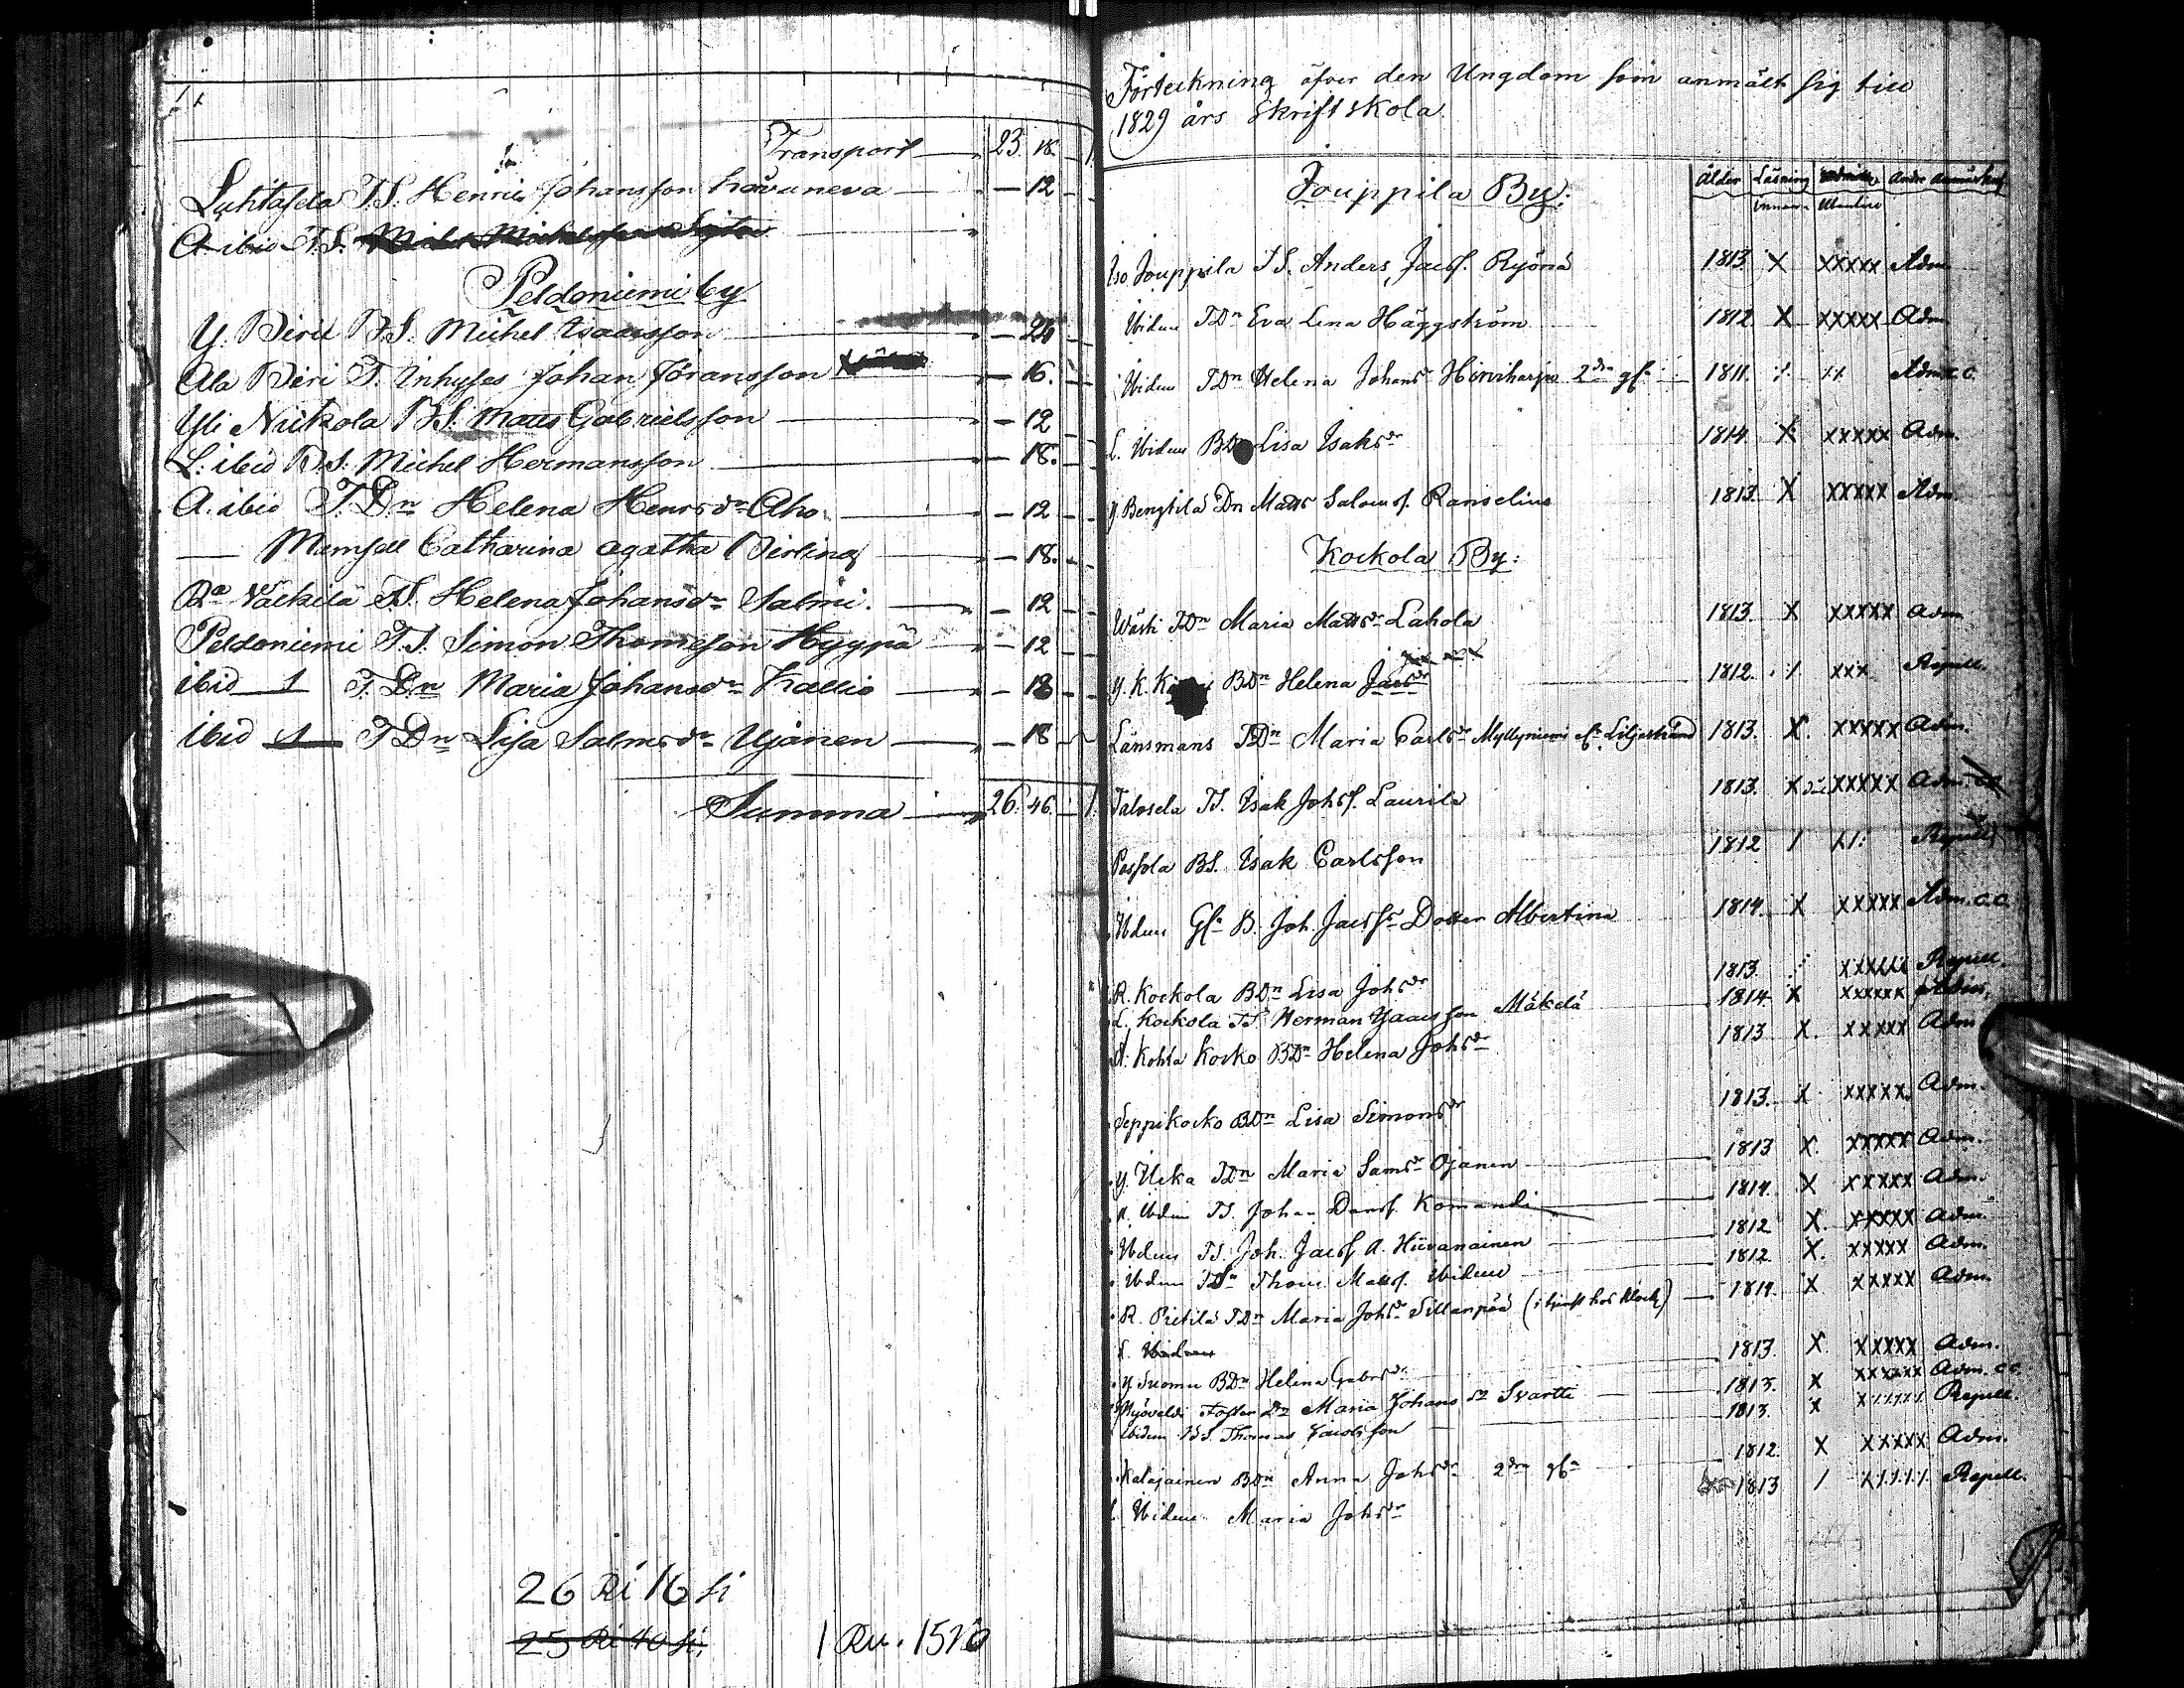 Transport — 23. 18. — 1
Luhtasela T.S. Henric Johansson Kåvaneva — 12 —
A. ibid T.S.
Peldoniemi by
Y. Piri B.S. Michel Isaacsson — 24 —
Ala Piri T. Inhyses Johan Jöransson — 16. —
Yli Nickola B.S. Matts Gabrielsson — 12
L: ibid B.S. Michel Hermansson — 18. —
A. ibid T.Dn Helena Henrsdr Aho — 12 —
— Mamsell Catharina Agatha — 18. —
Ra Väckilä T.S. Helena Johansdr Salmi. — 12 —
Peldoniemi T.S. Simon Thomsson Hyypä — 12 —
ibid 1 T.Dn Maria Johansdr Kallio — 18 —
ibid T.Dn Lisa Salmsdr Ujanen — 18
Summa — 26. 46. — 1.
26 Ri 16 si
25 Ri 40 si.
1 Ru. 1510
Förteckning öfver den Ungdom som anmält sig till
1829 års Skriftskola.
Jouppila By: Ålder Läsning Andre Anmärkn
innan Utantill
Iso Jouppila T.S. Anders Jacsf. Ryönä 1813 X XXXXX Adm
Ibidem TDn Eva Lena Häggström 1812 X XXXXX Adm
Ibidem TDn Helena Johansdr Hirviharju 2dra gn 1811. Adm. c.c.
L. Ibidem BDn Lisa Isaksdr 1814 X XXXXX Adm.
Y. Bengtilä Matts Salomsf. Ranselius 1813. X XXXXX Adm.
Kockola By:
Wästi TDn Maria Mattsdr Lahola 1813. X XXXXX Adm
Y. K. BDn Helena Jacsdr 1812. XXX Repell.
Länsmans TDn Maria Carlsdr Myllyniemi Liljestrand 1813. X. XXXXX Adm.
Talosela TS. Isak Johsf. Laurila 1813. X XXXXX Adm.
Passola BS. Isak Carlsson 1812 / Repell
Ibidem B. Joh. Jacsfs Dotter Albertina 1814. X XXXXX Adm. c.c.
R. Kockola BDn Lisa Johsdr 1813. Repell.
L. Kockola TS. Herman Isaacsson Mäkelä 1814 X XXXXX Adm.
A: Kohta Kocko BDn Helena Johsdr 1813 X. XXXXX Adm
Seppikocko BDn Lisa Simonsdr 1813. X XXXXX Adm.
Y. Ucka TDn Maria Samsdr Ojanen 1813 X. XXXXX Adm.
R. Ibdem TS. Johan Dansf. Komandi 1814. X XXXXX Adm.
Ibdem TS. Joh. Jacsf. A. Hiivanainen 1812 X. XXXXX Adm.
Ibdem Thom. Mattsf. Ibidem 1812. X. XXXXX Adm.
R. Pietilä TDn Maria Johsdr Sillanpää (i tjenst hos Klock) 1814. X XXXXX Adm.
L. Ibidem
Y. Suomu BDn Helena Gabrsdr 1813. X. XXXXX Adm.
Foster Dr Maria Johansdr Svartti 1813. X XXXXX Adm. c.c.
Ibidem BS. Thomas Jacobsson 1813. X Repell.
Kalajainen BDn Anna Johsdr 2dra gn 1812. X XXXXX Adm.
L. Ibidem Maria Johsdr 1813 / Repell.